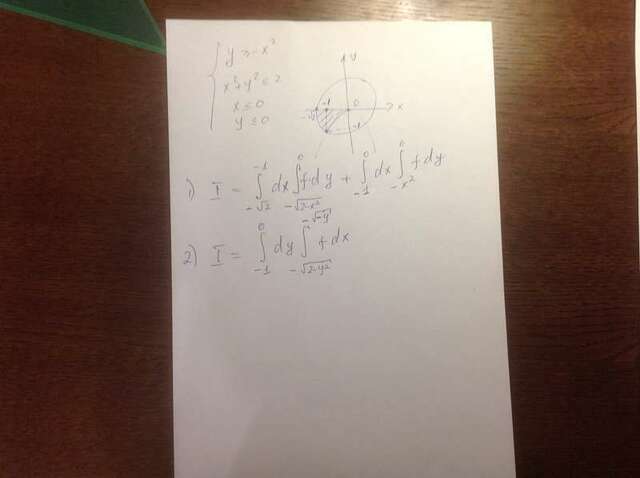 y ≥ -x²
x²+y² ≤ 2
x ≤ 0
y ≤ 0
y
x
0
-1
-√2
-1
1) I = ∫_{-√2}^{-1} dx ∫_{-√(2-x²)}^{0} f dy + ∫_{-1}^{0} dx ∫_{-x²}^{0} f dy
2) I = ∫_{-1}^{0} dy ∫_{-√(2-y²)}^{-√(-y)} f dx